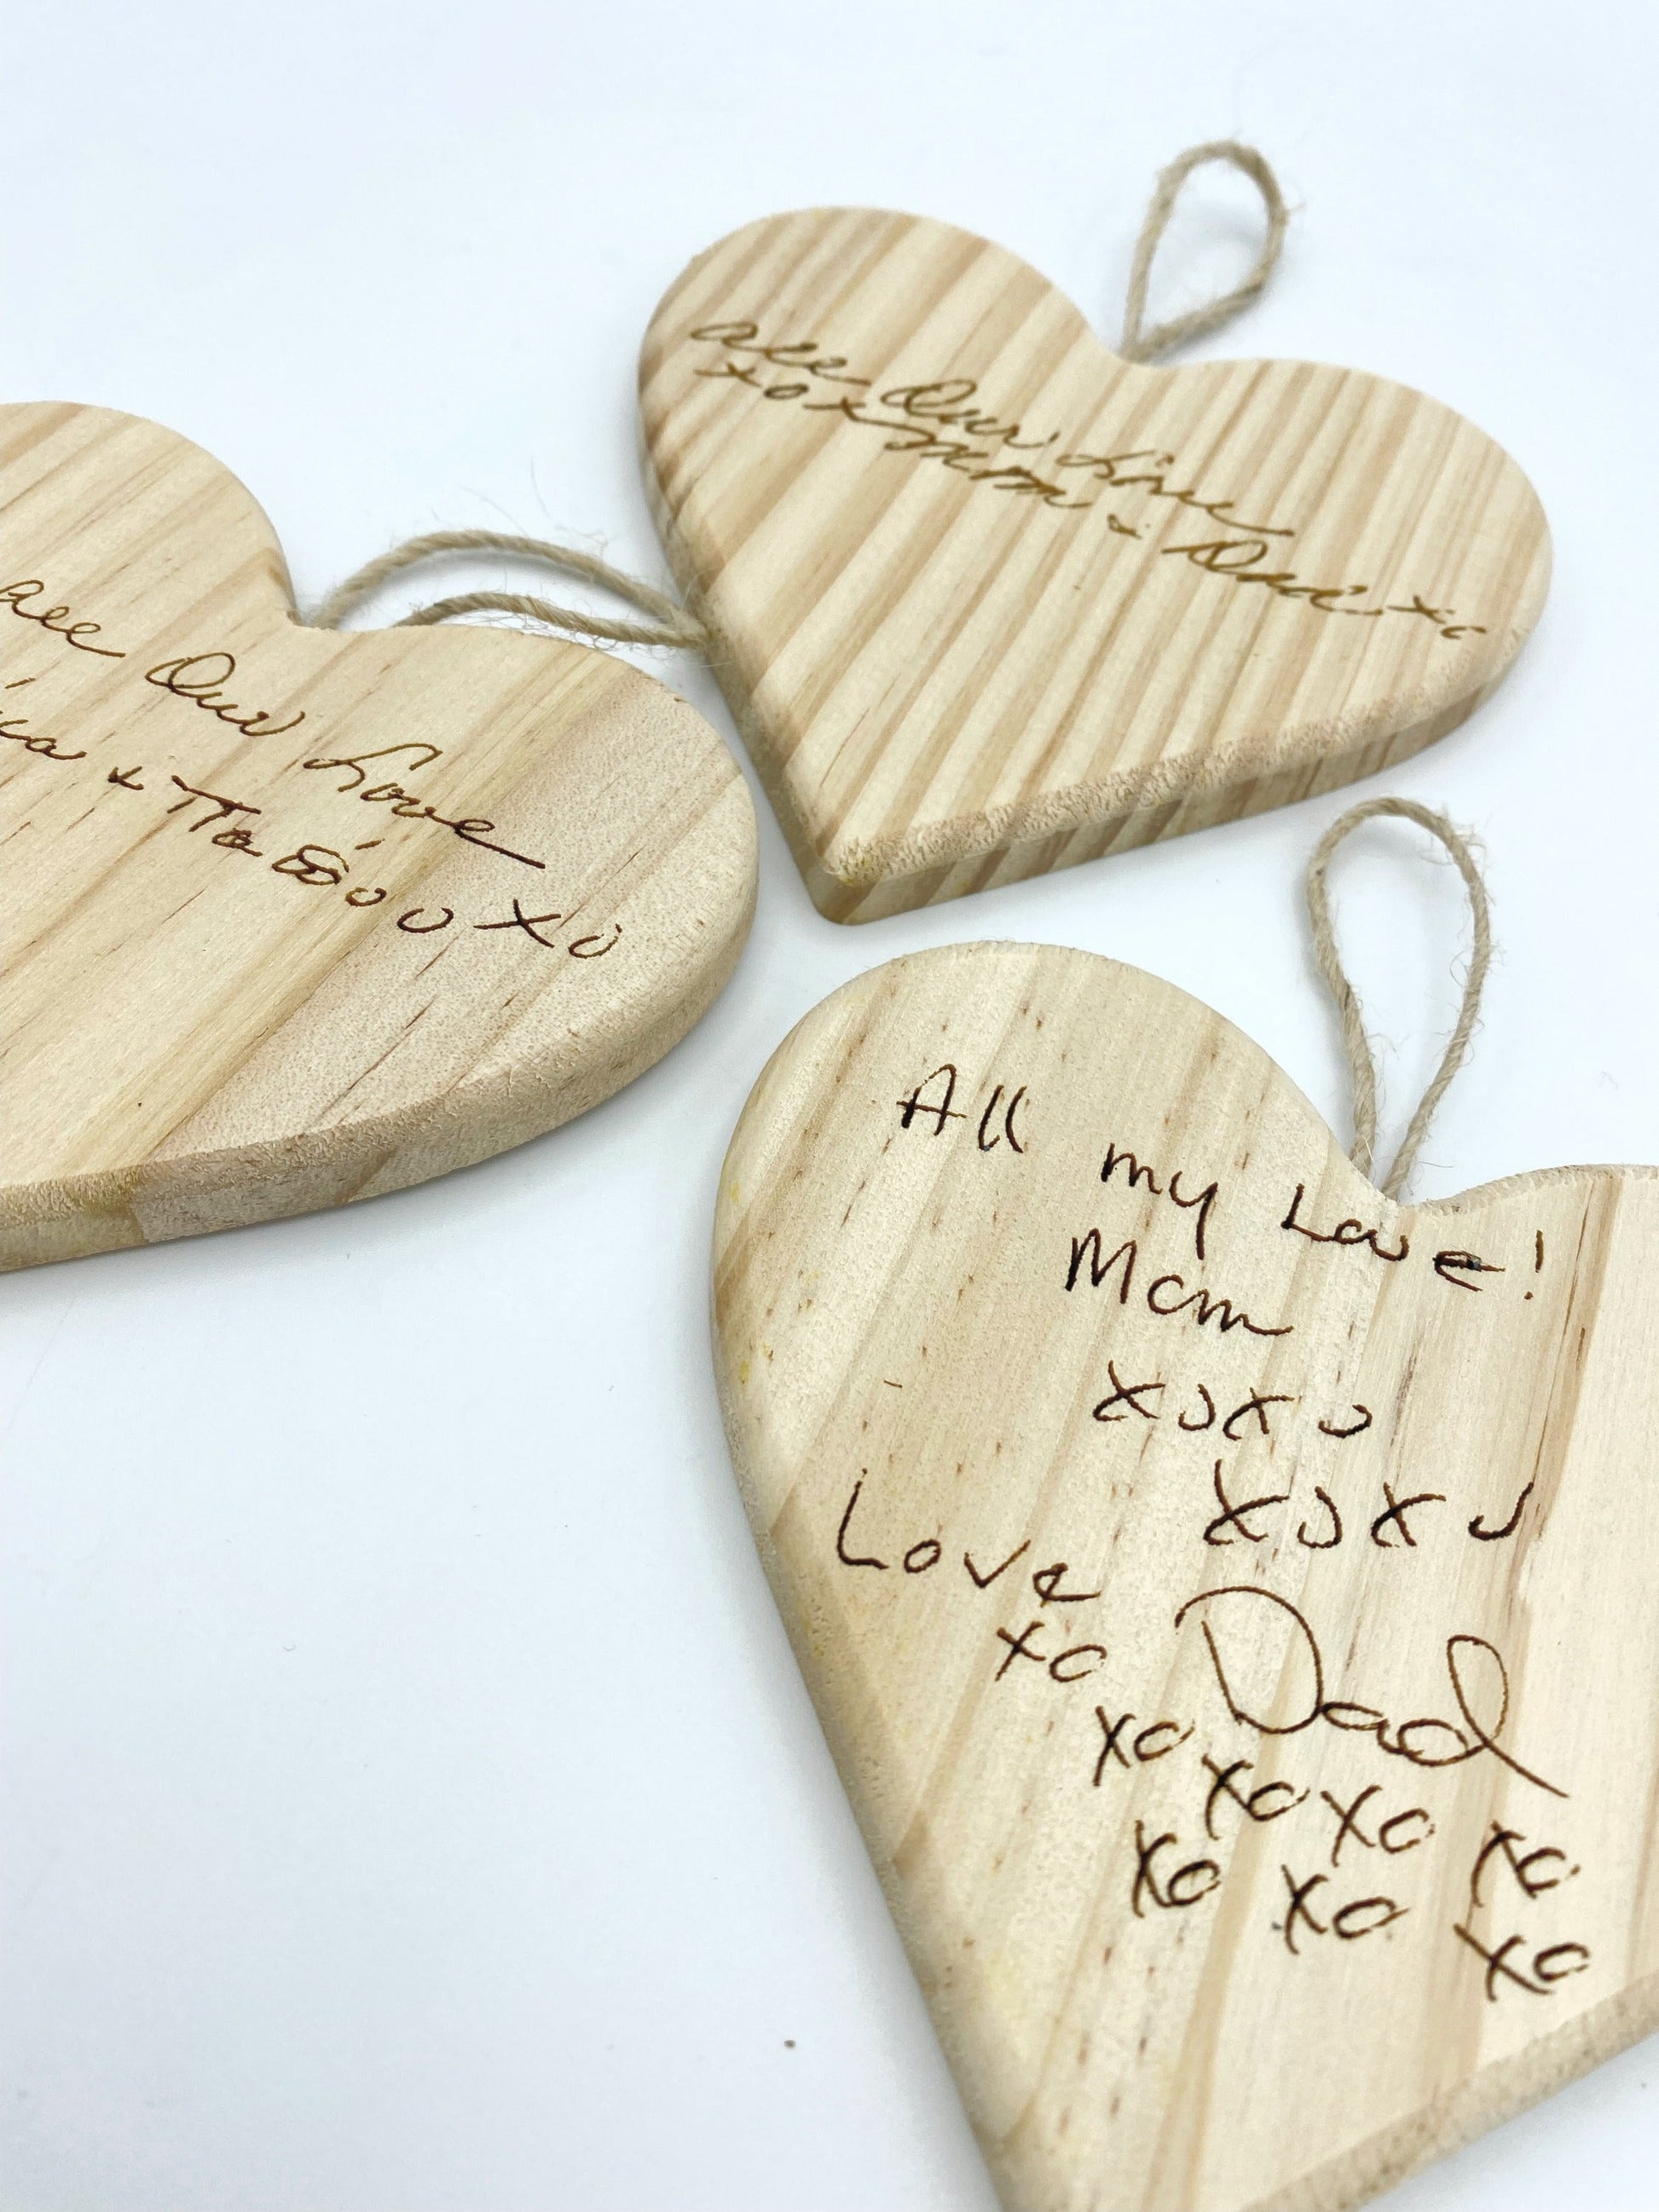 all Our Love
xoxMom + Dad x
all Our Love
+ xo
All my Love!
Mom
xoxo
xoxo
Love Dad
xo
xo
xo xo xo
xo xo xo